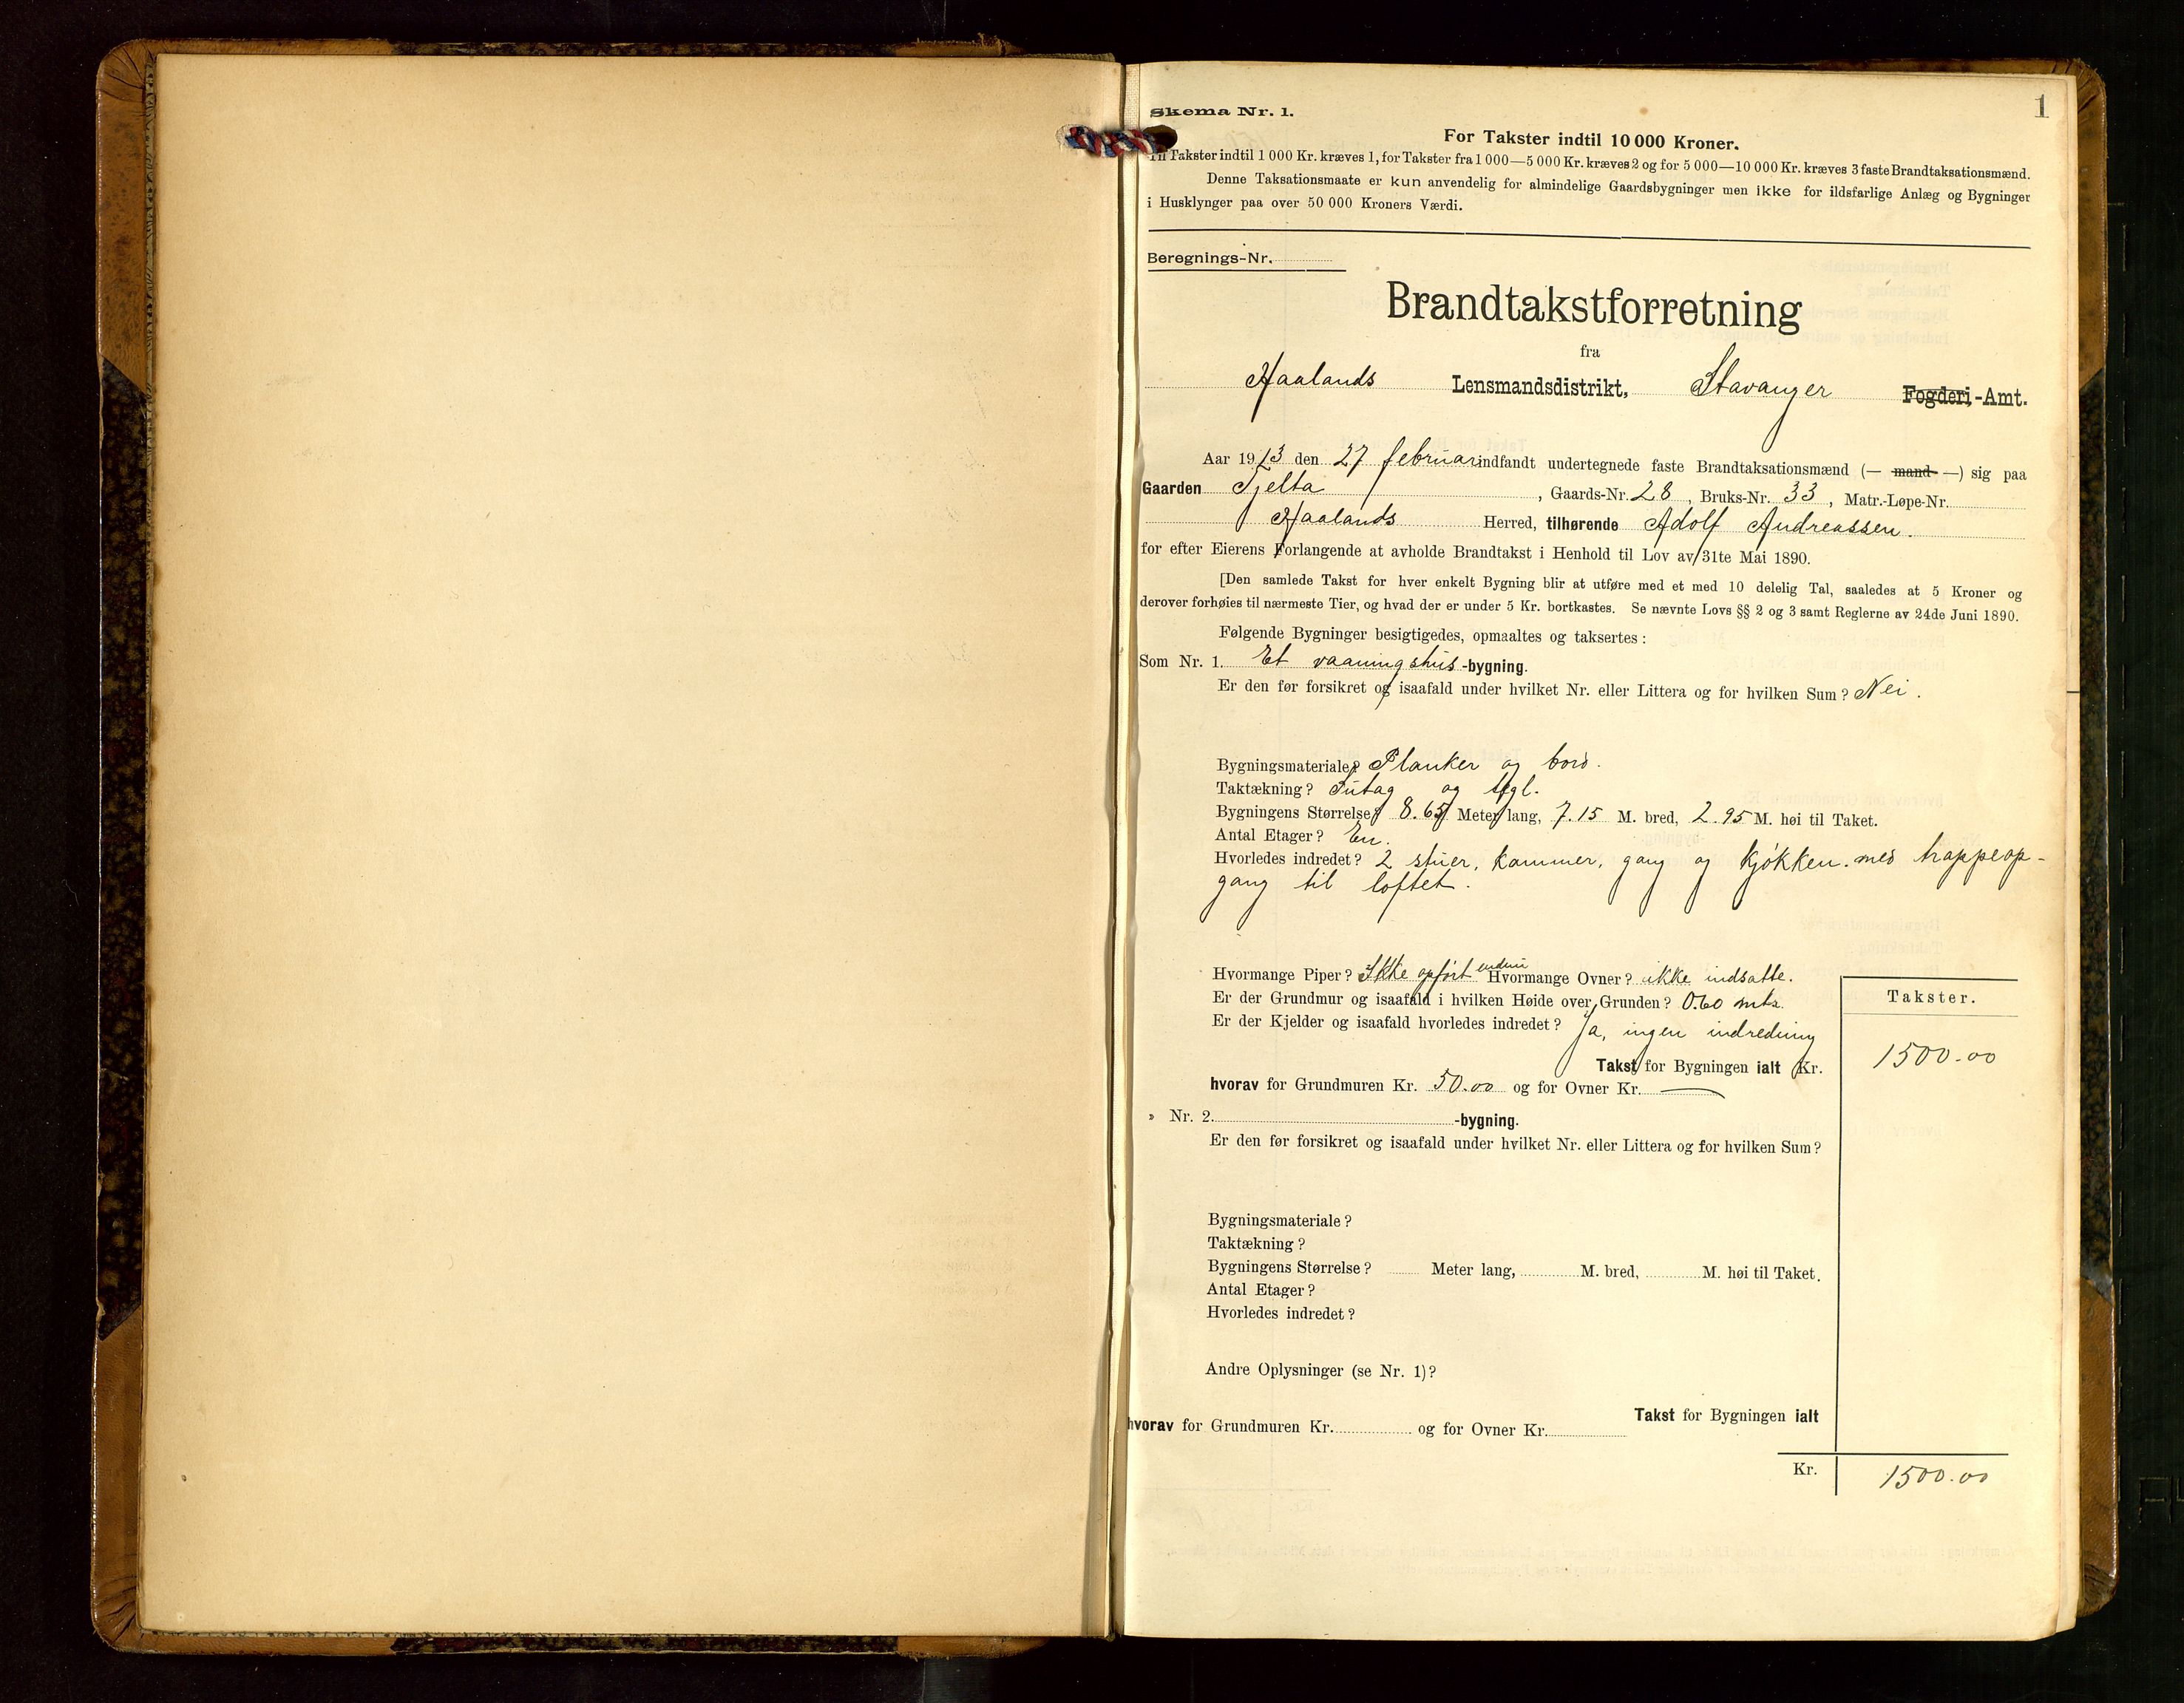 1
Skema Nr. 1.
For Takster indtil 10 000 Kroner.
Til Takster indtil 1 000 Kr. kræves 1, for Takster fra 1 000—5 000 Kr. kræves 2 og for 5 000—10 000 Kr. kræves 3 faste Brandtaksationsmænd.
Denne Taksationsmaate er kun anvendelig for almindelige Gaardsbygninger men ikke for ildsfarlige Anlæg og Bygninger
i Husklynger paa over 50 000 Kroners Værdi.
Beregnings-Nr.
Brandtakstforretning
fra
Haalands Lensmandsdistrikt, Stavanger Fogderi-Amt.
Aar 1913 den 27 februar indfandt undertegnede faste Brandtaksationsmænd (— mand —) sig paa
Gaarden Tjelta , Gaards-Nr. 28 , Bruks-Nr. 33 , Matr.-Løpe-Nr.
Haalands Herred, tilhørende Adolf Andreassen.
for efter Eierens Forlangende at avholde Brandtakst i Henhold til Lov av 31te Mai 1890.
[Den samlede Takst for hver enkelt Bygning blir at utføre med et med 10 delelig Tal, saaledes at 5 Kroner og
derover forhøies til nærmeste Tier, og hvad der er under 5 Kr. bortkastes. Se nævnte Lovs §§ 2 og 3 samt Reglerne av 24de Juni 1890.
Følgende Bygninger besigtigedes, opmaaltes og taksertes :
Som Nr. 1. Et vaaningshus -bygning.
Er den før forsikret og isaafald under hvilket Nr. eller Littera og for hvilken Sum ? Nei.
Bygningsmateriale ? Planker og bord.
Taktækning ? Sutag og tegl.
Bygningens Størrelse ? 8.65 Meter lang, 7.15 M. bred, 2.95 M. høi til Taket.
Antal Etager ? En.
Hvorledes indredet ? 2 stuer, kammer, gang og kjøkken med trappeop-
gang til loftet.
Hvormange Piper ? Ikke opført endnu Hvormange Ovner ? ikke indsatte.
Er der Grundmur og isaafald i hvilken Høide over Grunden ? 0.60 mtr.
Er der Kjelder og isaafald hvorledes indredet ? Ja, ingen indredning
Takster.
Takst for Bygningen ialt Kr. 1500.00
hvorav for Grundmuren Kr. 50.00 og for Ovner Kr. —
» Nr. 2. -bygning.
Er den før forsikret og isaafald under hvilket Nr. eller Littera og for hvilken Sum ?
Bygningsmateriale ?
Taktækning ?
Bygningens Størrelse ? Meter lang, M. bred, M. høi til Taket.
Antal Etager ?
Hvorledes indredet ?
Andre Oplysninger (se Nr. 1) ?
Takst for Bygningen ialt
hvorav for Grundmuren Kr. og for Ovner Kr.
Kr. 1500.00